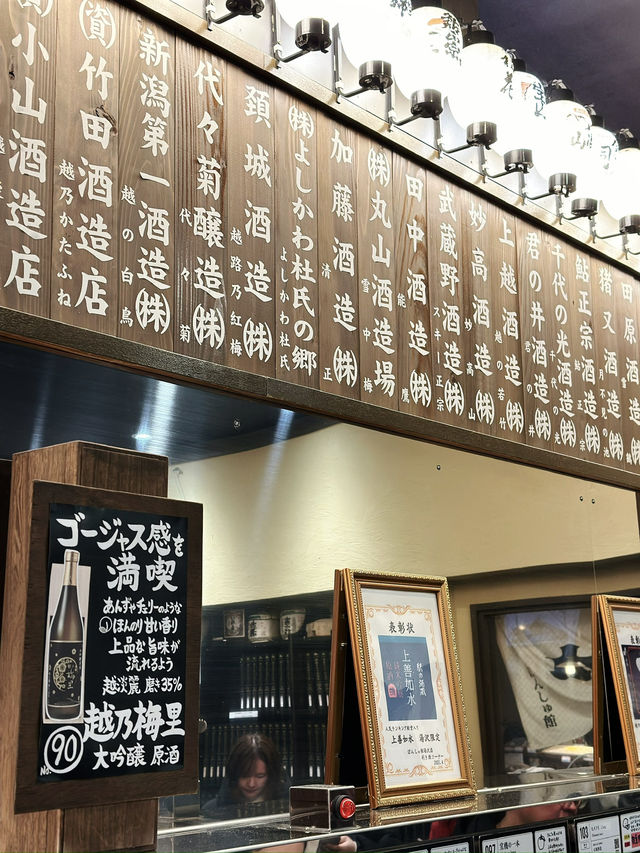 小山酒造店
㈾竹田酒造店
越乃かたふね
新潟第一酒造㈱
越の白鳥
代々菊醸造㈱
代々菊
頚城酒造㈱
越路乃紅梅
㈱よしかわ杜氏の郷
よしかわ杜氏
加藤酒造㈱
清正
㈱丸山酒造場
雪中梅
田中酒造㈱
能鷹
武蔵野酒造㈱
スキー正宗
妙高酒造㈱
妙高山
上越酒造㈱
越の若竹
君の井酒造㈱
君の井
千代の光酒造㈱
千代の光
鮎正宗酒造㈱
鮎正宗
猪又酒造㈱
月不見の池
田原酒造㈱
ゴージャス感を
満喫
あんずやチェリーのような
ほんのり甘い香り
上品な旨味が
流れるよう
越淡麗 磨き35%
越乃梅里
No.90
大吟醸 原酒
表彰状
上善如水
上善如水 湯沢限定
んしゅ館
097
103